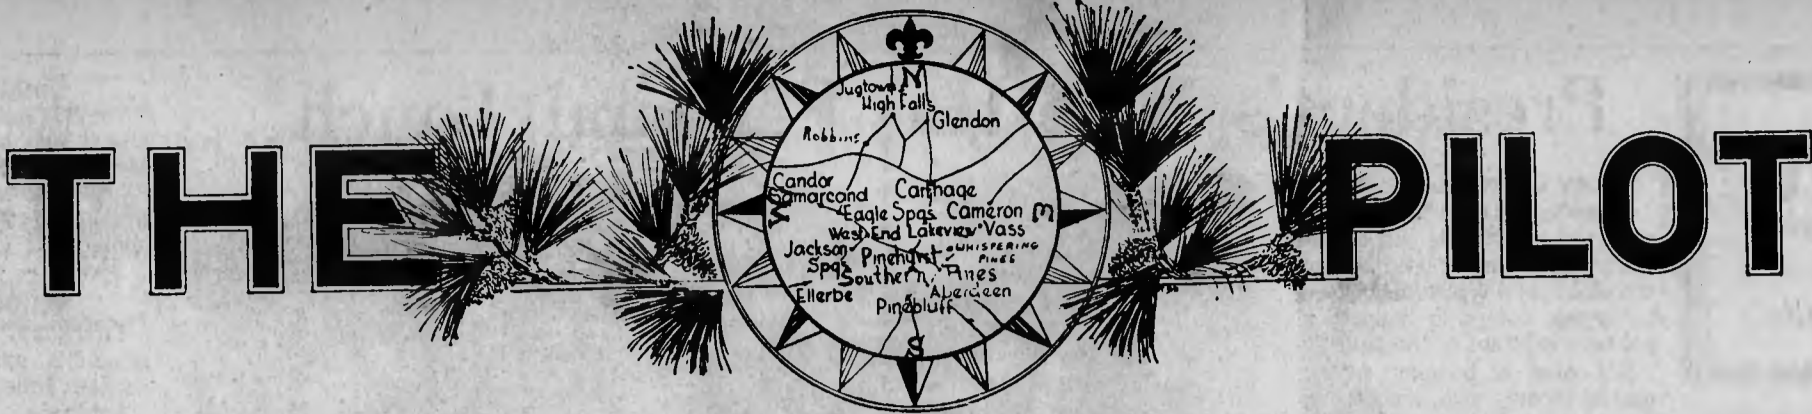 THE PILOT
N
Jugtown
High Falls
Glendon
Robbins
Candor
Samarcand
Carthage
Eagle Spgs Cameron
W E
West End Lakeview Vass
Jackson Spgs
Pinehurst
WHISPERING PINES
Southern Pines
Ellerbe
Aberdeen
Pinebluff
S